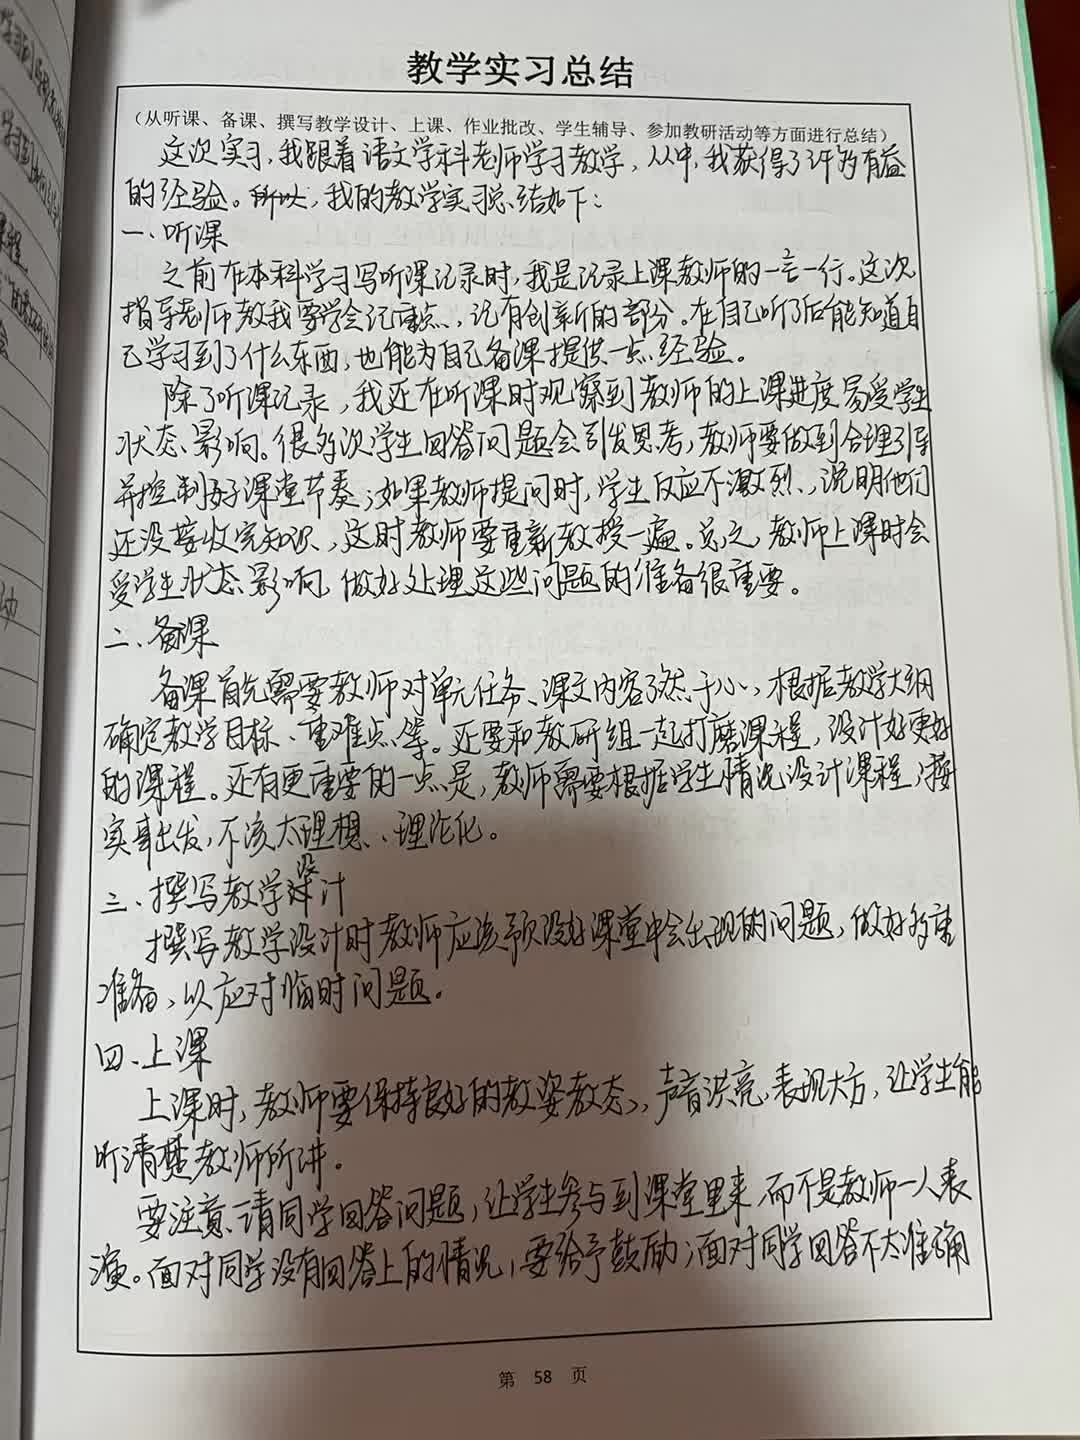 教学实习总结
（从听课、备课、撰写教学设计、上课、作业批改、学生辅导、参加教研活动等方面进行总结）
这次实习，我跟着语文学科老师学习教学，从中，我获得了许多有益
的经验。所以，我的教学实习总结如下：
一、听课
之前在本科学习写听课记录时，我是记录上课教师的一言一行。这次
指导老师教我要学会记重点，记有创新的部分。在自己听了后能知道自
己学习到了什么东西，也能为自己备课提供一点经验。
除了听课记录，我还在听课时观察到教师的上课进度易受学生
状态影响。很多次学生回答问题会引发思考，教师要做到合理引导
并控制好课堂节奏；如果教师提问时，学生反应不激烈，说明他们
还没接收完知识，这时教师要重新教授一遍。总之，教师上课时会
受学生状态影响，做好处理这些问题的准备很重要。
二、备课
备课首先需要教师对单元任务、课文内容了然于心，根据教学大纲
确定教学目标、重难点等。还要和教研组一起打磨课程，设计好更好
的课程。还有更重要的一点是，教师需要根据学生情况设计课程，接
实事出发，不该太理想、理论化。
三、撰写教学设计
撰写教学设计时教师应该预设好课堂中会出现的问题，做好多重
准备，以应对临时问题。
四、上课
上课时，教师要保持良好的教姿教态，声音洪亮，表现大方，让学生能
听清楚教师所讲。
要注意请同学回答问题，让学生参与到课堂里来，而不是教师一人表
演。面对同学没有回答上的情况，要给予鼓励；面对同学回答不太准确
第 58 页